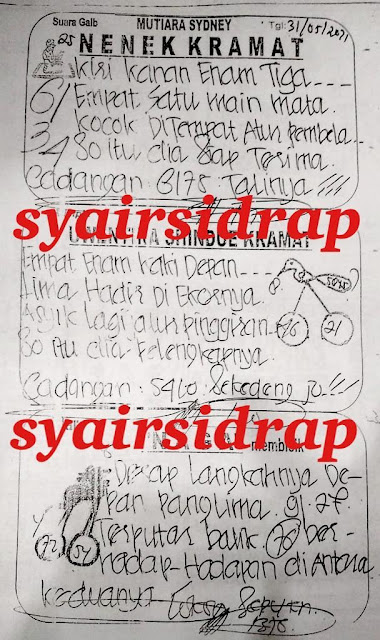 Suara Gaib MUTIARA SYDNEY Tgl: 31/05/2021
25 NENEK KRAMAT
Kiri Kanan Enam Tiga
61/ Empat Satu main mata
Kocok DiTempat Atun pembela
34 So itu dia Siap Terima
Cadangan: 6175. Talinya !!!
syairsidrap
KRAMAT
Empat Enam kaki Depan
Lima Hadir Di Ekornya.
Asyik lagi atun pinggiran
76 71
So itu dia Pelengkapnya.
Cadangan:
syairsidrap
Membisik
Derap Langkahnya De-
pan panglima. 91.27.
Terputar balik. 76 ber-
72 54
hadap-Hadapan di Antara
keduanya